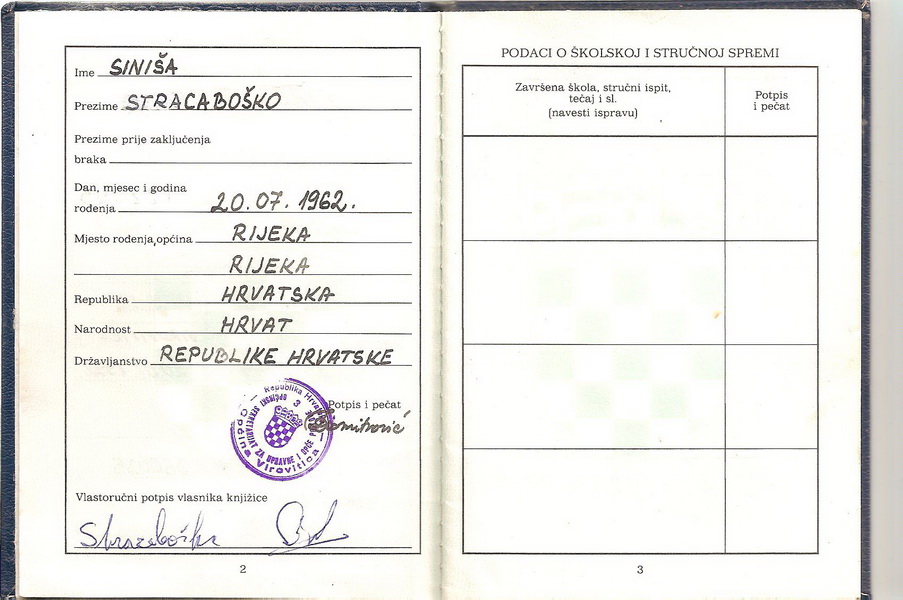 Ime SINIŠA
Prezime STRACABOŠKO
Prezime prije zaključenja
braka
Dan, mjesec i godina
rođenja 20.07.1962.
Mjesto rođenja, općina RIJEKA
RIJEKA
Republika HRVATSKA
Narodnost HRVAT
Državljanstvo REPUBLIKE HRVATSKE
Republika Hrvatska
3
OPĆINSKI SEKRETARIJAT ZA UPRAVNE I OPĆE
Općina Virovitica
Potpis i pečat
Vlastoručni potpis vlasnika knjižice
2
PODACI O ŠKOLSKOJ I STRUČNOJ SPREMI
Završena škola, stručni ispit,
tečaj i sl.
(navesti ispravu)
Potpis
i pečat
3